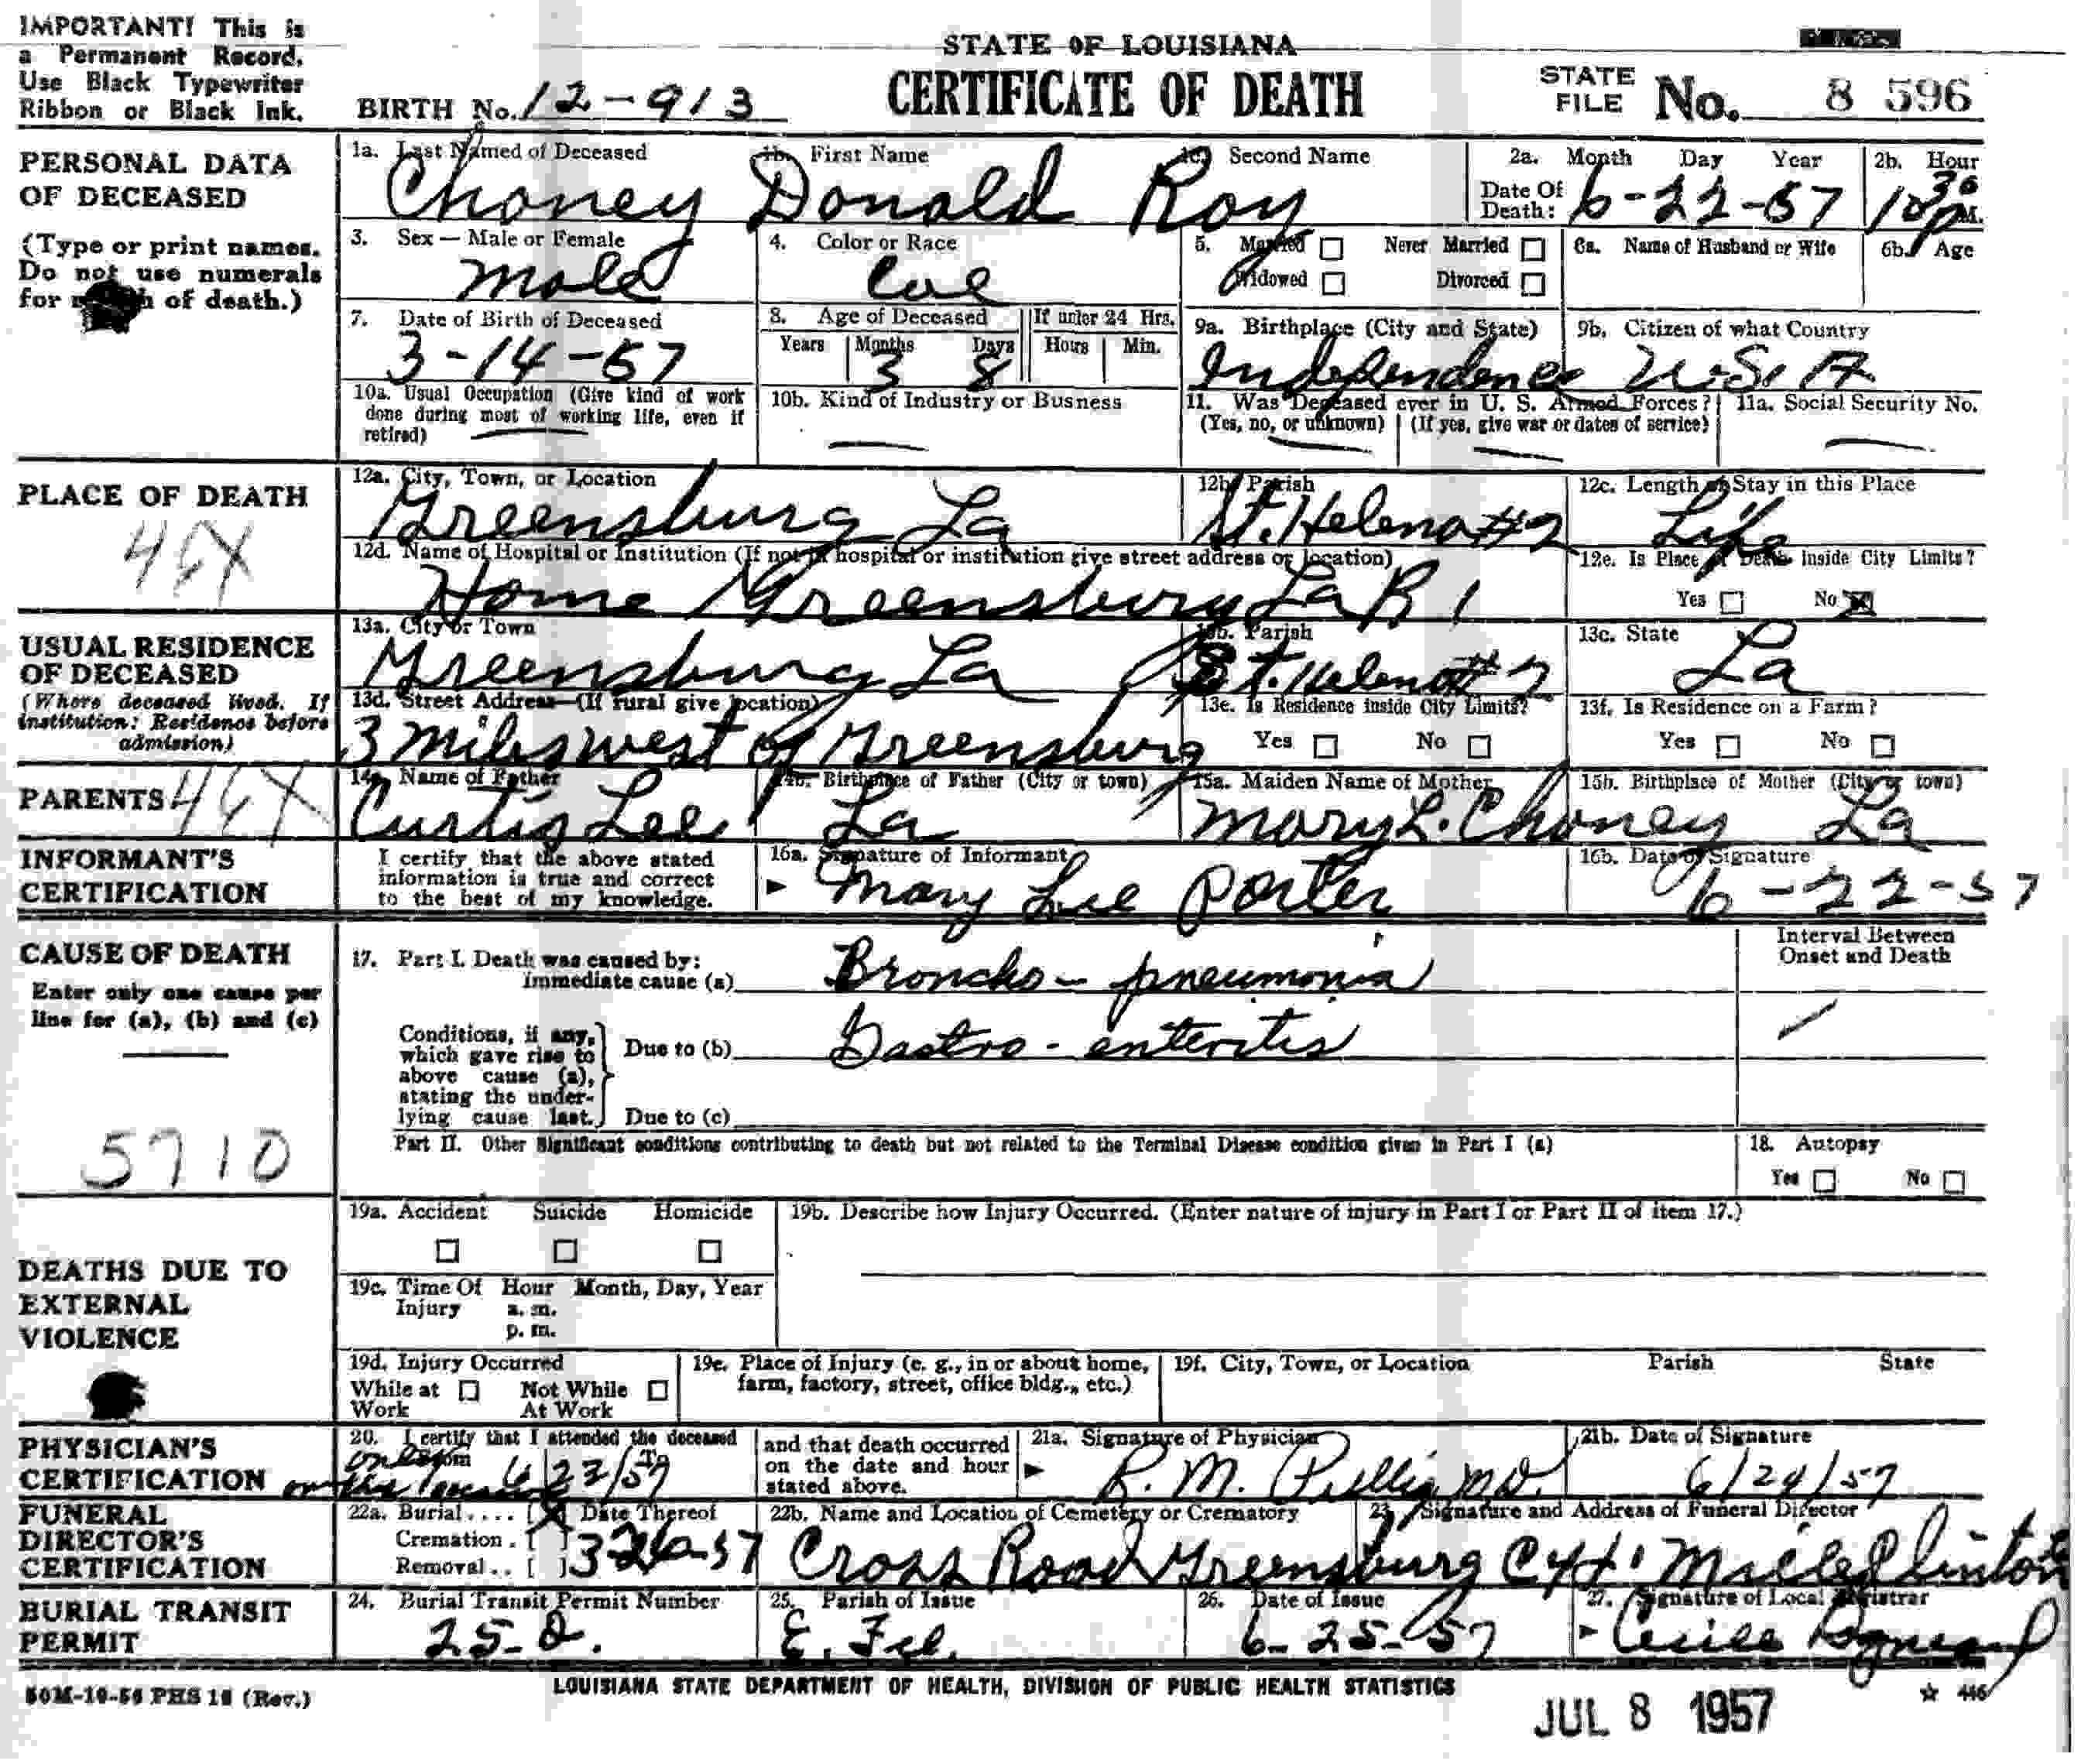 IMPORTANT! This is
a Permanent Record.
Use Black Typewriter
Ribbon or Black Ink.
STATE OF LOUISIANA
CERTIFICATE OF DEATH
BIRTH No. 12-913
STATE FILE No. 8 596
PERSONAL DATA
OF DECEASED
(Type or print names.
Do not use numerals
for of death.)
1a. Last Named of Deceased 1b. First Name 1c. Second Name 2a. Month Day Year 2b. Hour
Choney Donald Roy Date Of Death: 6-22-57 10 30 P.M.
3. Sex — Male or Female 4. Color or Race 5. Married Never Married 6a. Name of Husband or Wife 6b. Age
Male Col Widowed Divorced
7. Date of Birth of Deceased 8. Age of Deceased If under 24 Hrs. 9a. Birthplace (City and State) 9b. Citizen of what Country
Years Months Days Hours Min.
3-14-57 3 8 Independence U.S.A
10a. Usual Occupation (Give kind of work
done during most of working life, even if
retired)
10b. Kind of Industry or Busness
11. Was Deceased ever in U. S. Armed Forces? 11a. Social Security No.
(Yes, no, or unknown) (If yes, give war or dates of service)
PLACE OF DEATH
46X
12a. City, Town, or Location 12b. Parish 12c. Length of Stay in this Place
Greensburg La St. Helena #2 Life
12d. Name of Hospital or Institution (If not in hospital or institution give street address or location) 12e. Is Place of Death inside City Limits?
Home Greensburg La R 1 Yes No
USUAL RESIDENCE
OF DECEASED
(Where deceased lived. If
institution: Residence before
admission)
13a. City or Town 13b. Parish 13c. State
Greensburg La St. Helena #2 La
13d. Street Address—(If rural give location) 13e. Is Residence inside City Limits? 13f. Is Residence on a Farm?
3 miles west of Greensburg Yes No Yes No
PARENTS 46X
14a. Name of Father 14b. Birthplace of Father (City or town) 15a. Maiden Name of Mother 15b. Birthplace of Mother (City or town)
Curtis Lee La Mary L. Choney La
INFORMANT'S
CERTIFICATION
I certify that the above stated
information is true and correct
to the best of my knowledge.
16a. Signature of Informant 16b. Date of Signature
Mary Lee Porter 6-22-57
CAUSE OF DEATH
Enter only one cause per
line for (a), (b) and (c)
5710
17. Part I. Death was caused by:
Immediate cause (a) Broncho-pneumonia
Interval Between
Onset and Death
Conditions, if any,
which gave rise to
above cause (a),
stating the under-
lying cause last.
Due to (b) Gastro-enteritis
Due to (c)
Part II. Other Significant conditions contributing to death but not related to the Terminal Disease condition given in Part I (a)
18. Autopsy
Yes No
DEATHS DUE TO
EXTERNAL
VIOLENCE
19a. Accident Suicide Homicide 19b. Describe how Injury Occurred. (Enter nature of injury in Part I or Part II of item 17.)
19c. Time Of Hour Month, Day, Year
Injury a. m.
p. m.
19d. Injury Occurred
While at Work Not While At Work
19e. Place of Injury (e. g., in or about home,
farm, factory, street, office bldg., etc.)
19f. City, Town, or Location Parish State
PHYSICIAN'S
CERTIFICATION
20. I certify that I attended the deceased
From To
6/22/57
and that death occurred
on the date and hour
stated above.
21a. Signature of Physician 21b. Date of Signature
R. M. M.D. 6/24/57
FUNERAL
DIRECTOR'S
CERTIFICATION
22a. Burial.... [X] Date Thereof
Cremation . [ ]
Removal .. [ ]
3-26-57
22b. Name and Location of Cemetery or Crematory 23. Signature and Address of Funeral Director
Cross Road Greensburg Clinton
BURIAL TRANSIT
PERMIT
24. Burial Transit Permit Number 25. Parish of Issue 26. Date of Issue 27. Signature of Local Registrar
25-D. E. Fel. 6-25-57
50M-10-56 PHS 16 (Rev.)
LOUISIANA STATE DEPARTMENT OF HEALTH, DIVISION OF PUBLIC HEALTH STATISTICS
☆ 446
JUL 8 1957